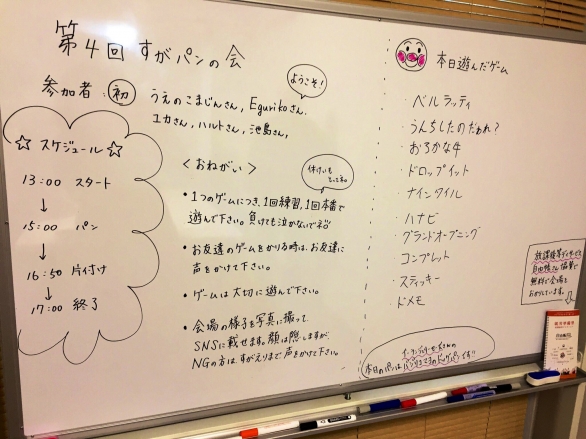 第4回 すがパンの会
参加者: 初 うえのこまじんさん, Egurikoさん,
ユカさん, ハルトさん, 池島さん,
ようこそ!
☆ スケジュール ☆
13:00 スタート
↓
15:00 パン
↓
16:50 片付け
↓
17:00 終了
<おねがい>
休けいも
とってネ。
・1つのゲームにつき、1回練習、1回本番で
遊んで下さい。負けても泣かないでネ
・お友達のゲームをかりる時は、お友達に
声をかけて下さい。
・ゲームは大切に遊んで下さい。
・会場の様子を写真に撮って、
SNSに載せます。顔は隠しますが、
NGの方は、すがえりまで声をかけて下さい。
本日遊んだゲーム
・ベルラッティ
・うんちしたのだぁれ?
・おろかな牛
・ドロップイット
・ナインタイル
・ハナビ
・グランドオープニング
・コンプレット
・スティッキー
・ドメモ
放課後等デイサービス
自由帳さん協賛で
無料で会場を
おかりしています。
本日のパンは
です!!